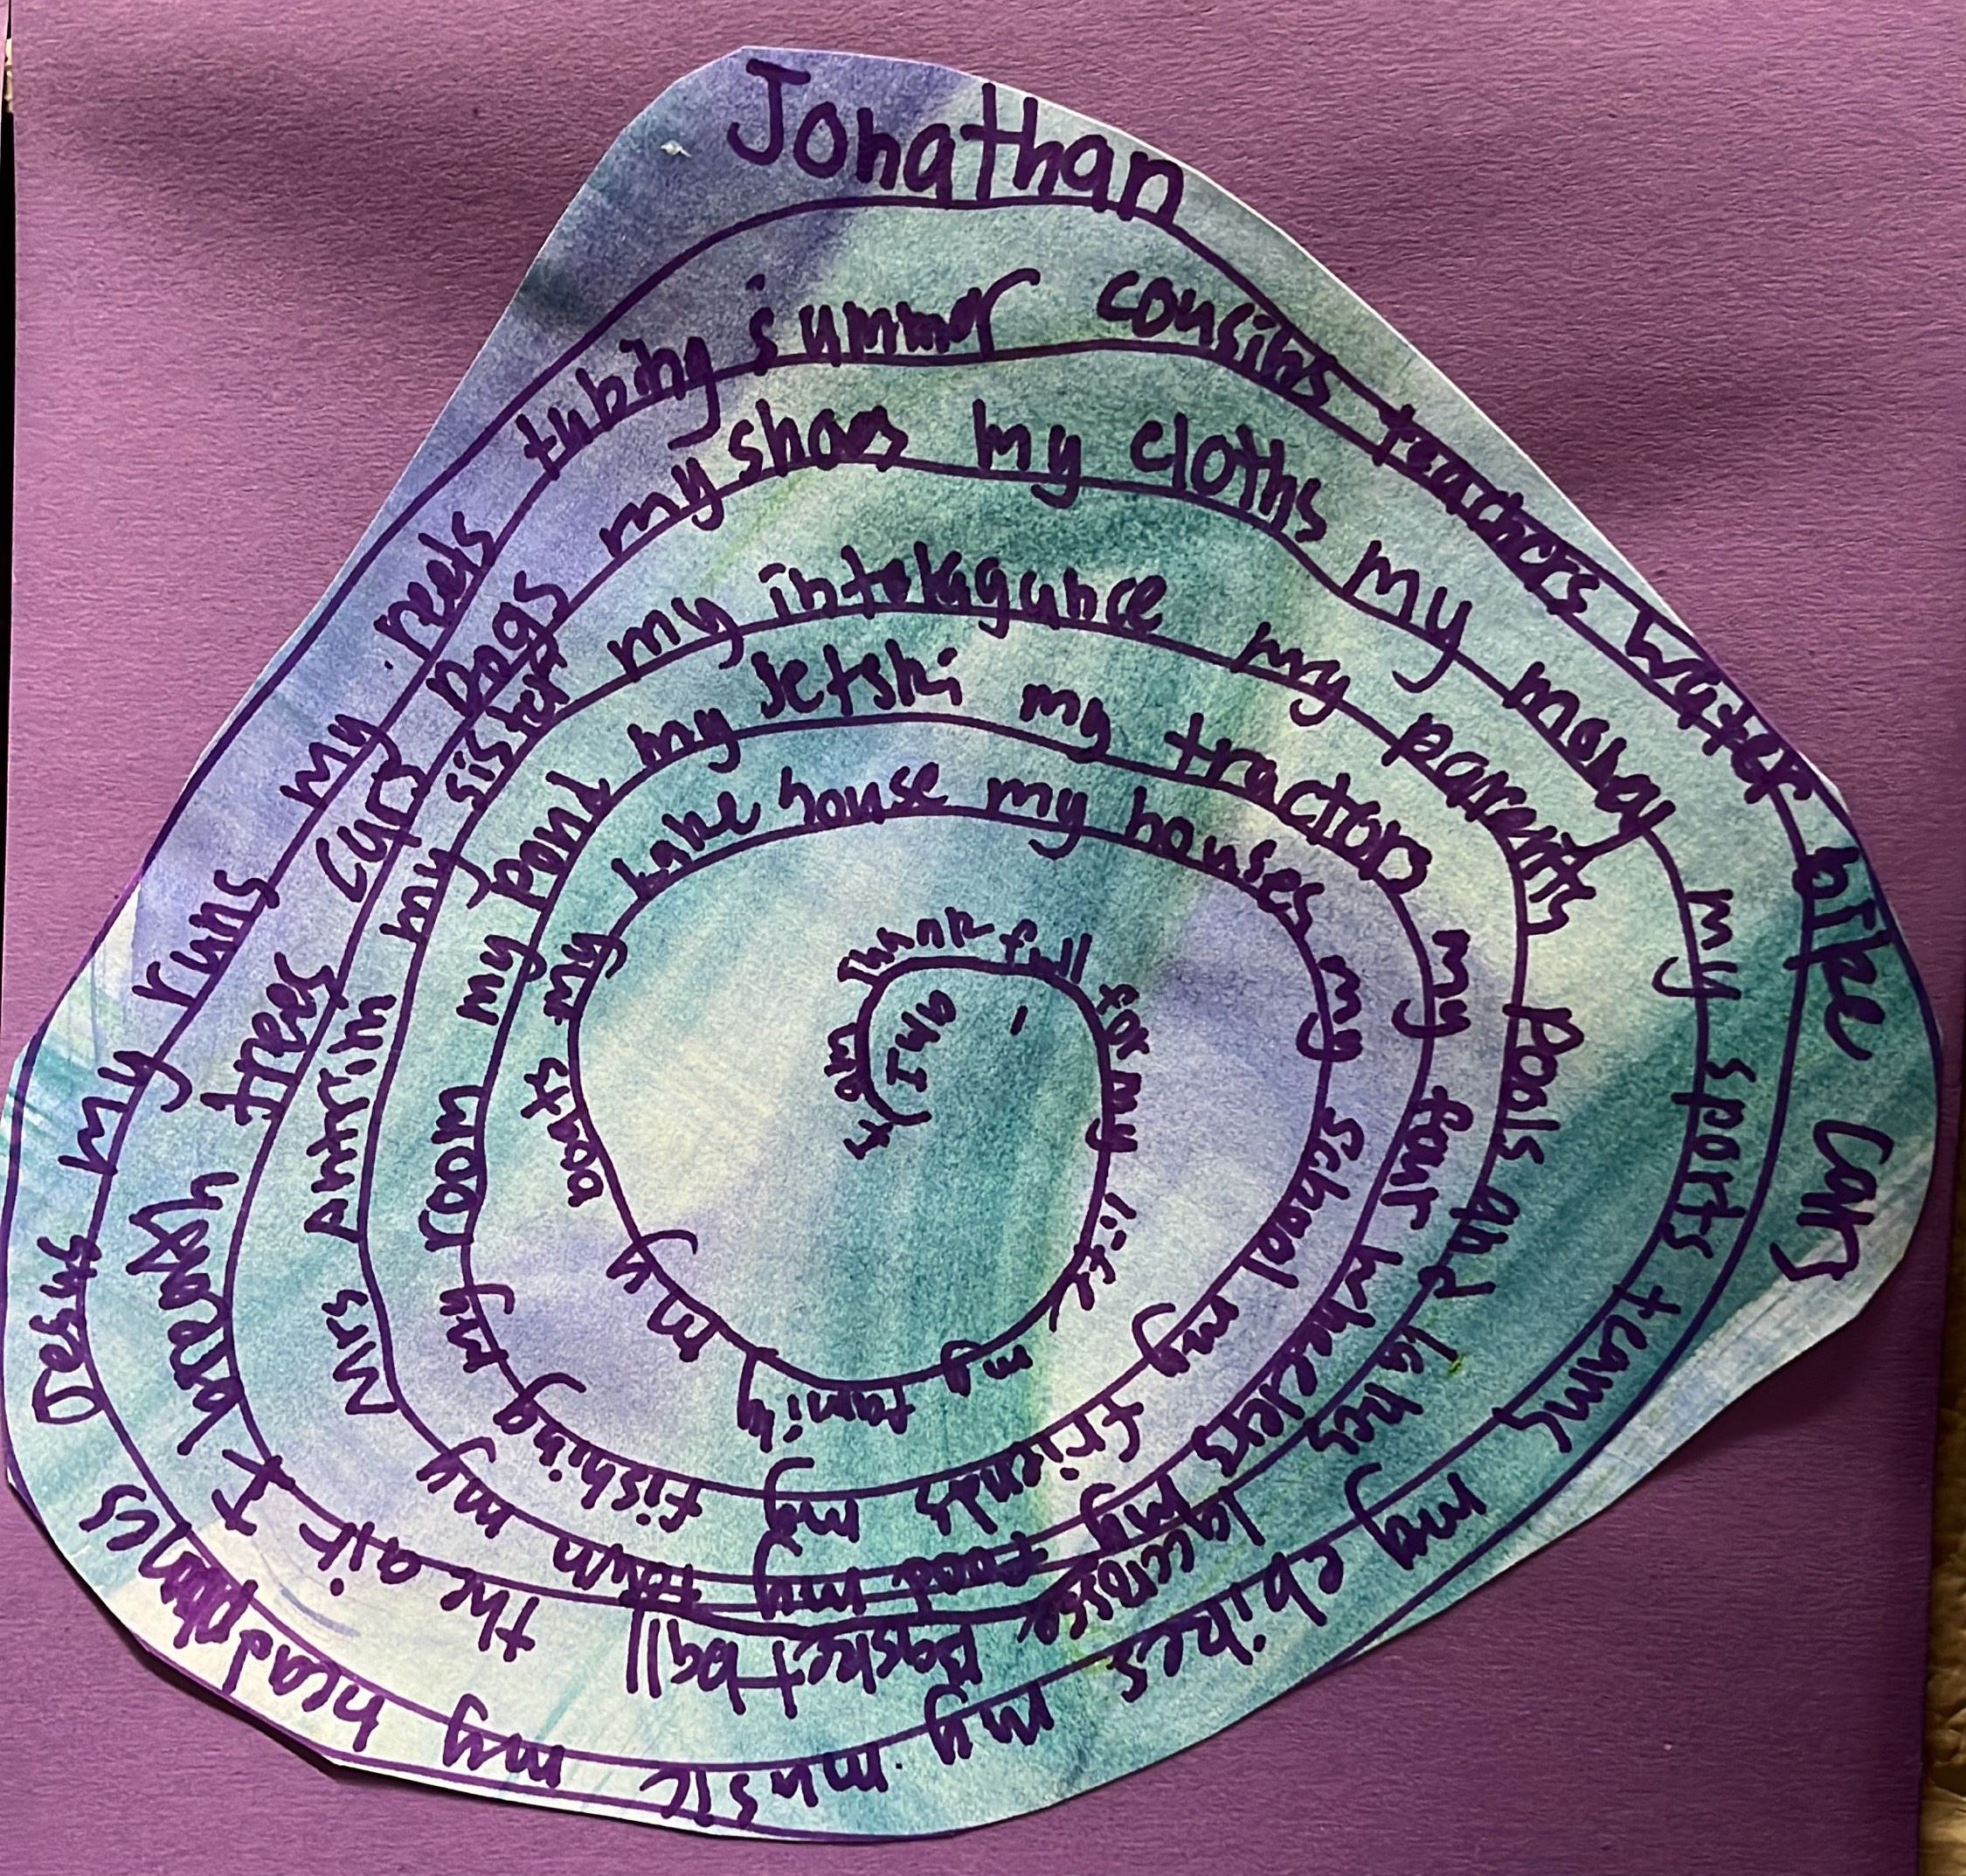 Jonathan
am thank full for my life my family my boats
my Lake house my houses my School my friends my fishing my room
my pond my Jetski my tractors my four wheelers my food my town my Mrs Antrim
my sister my intelagunce my parents Pools and lakes lacrosse Basketball the air I trees cars
Dogs my shoes my cloths my money my sports teams my ebikes my music my my runs
my reels tubing summer cousins teachers water bike